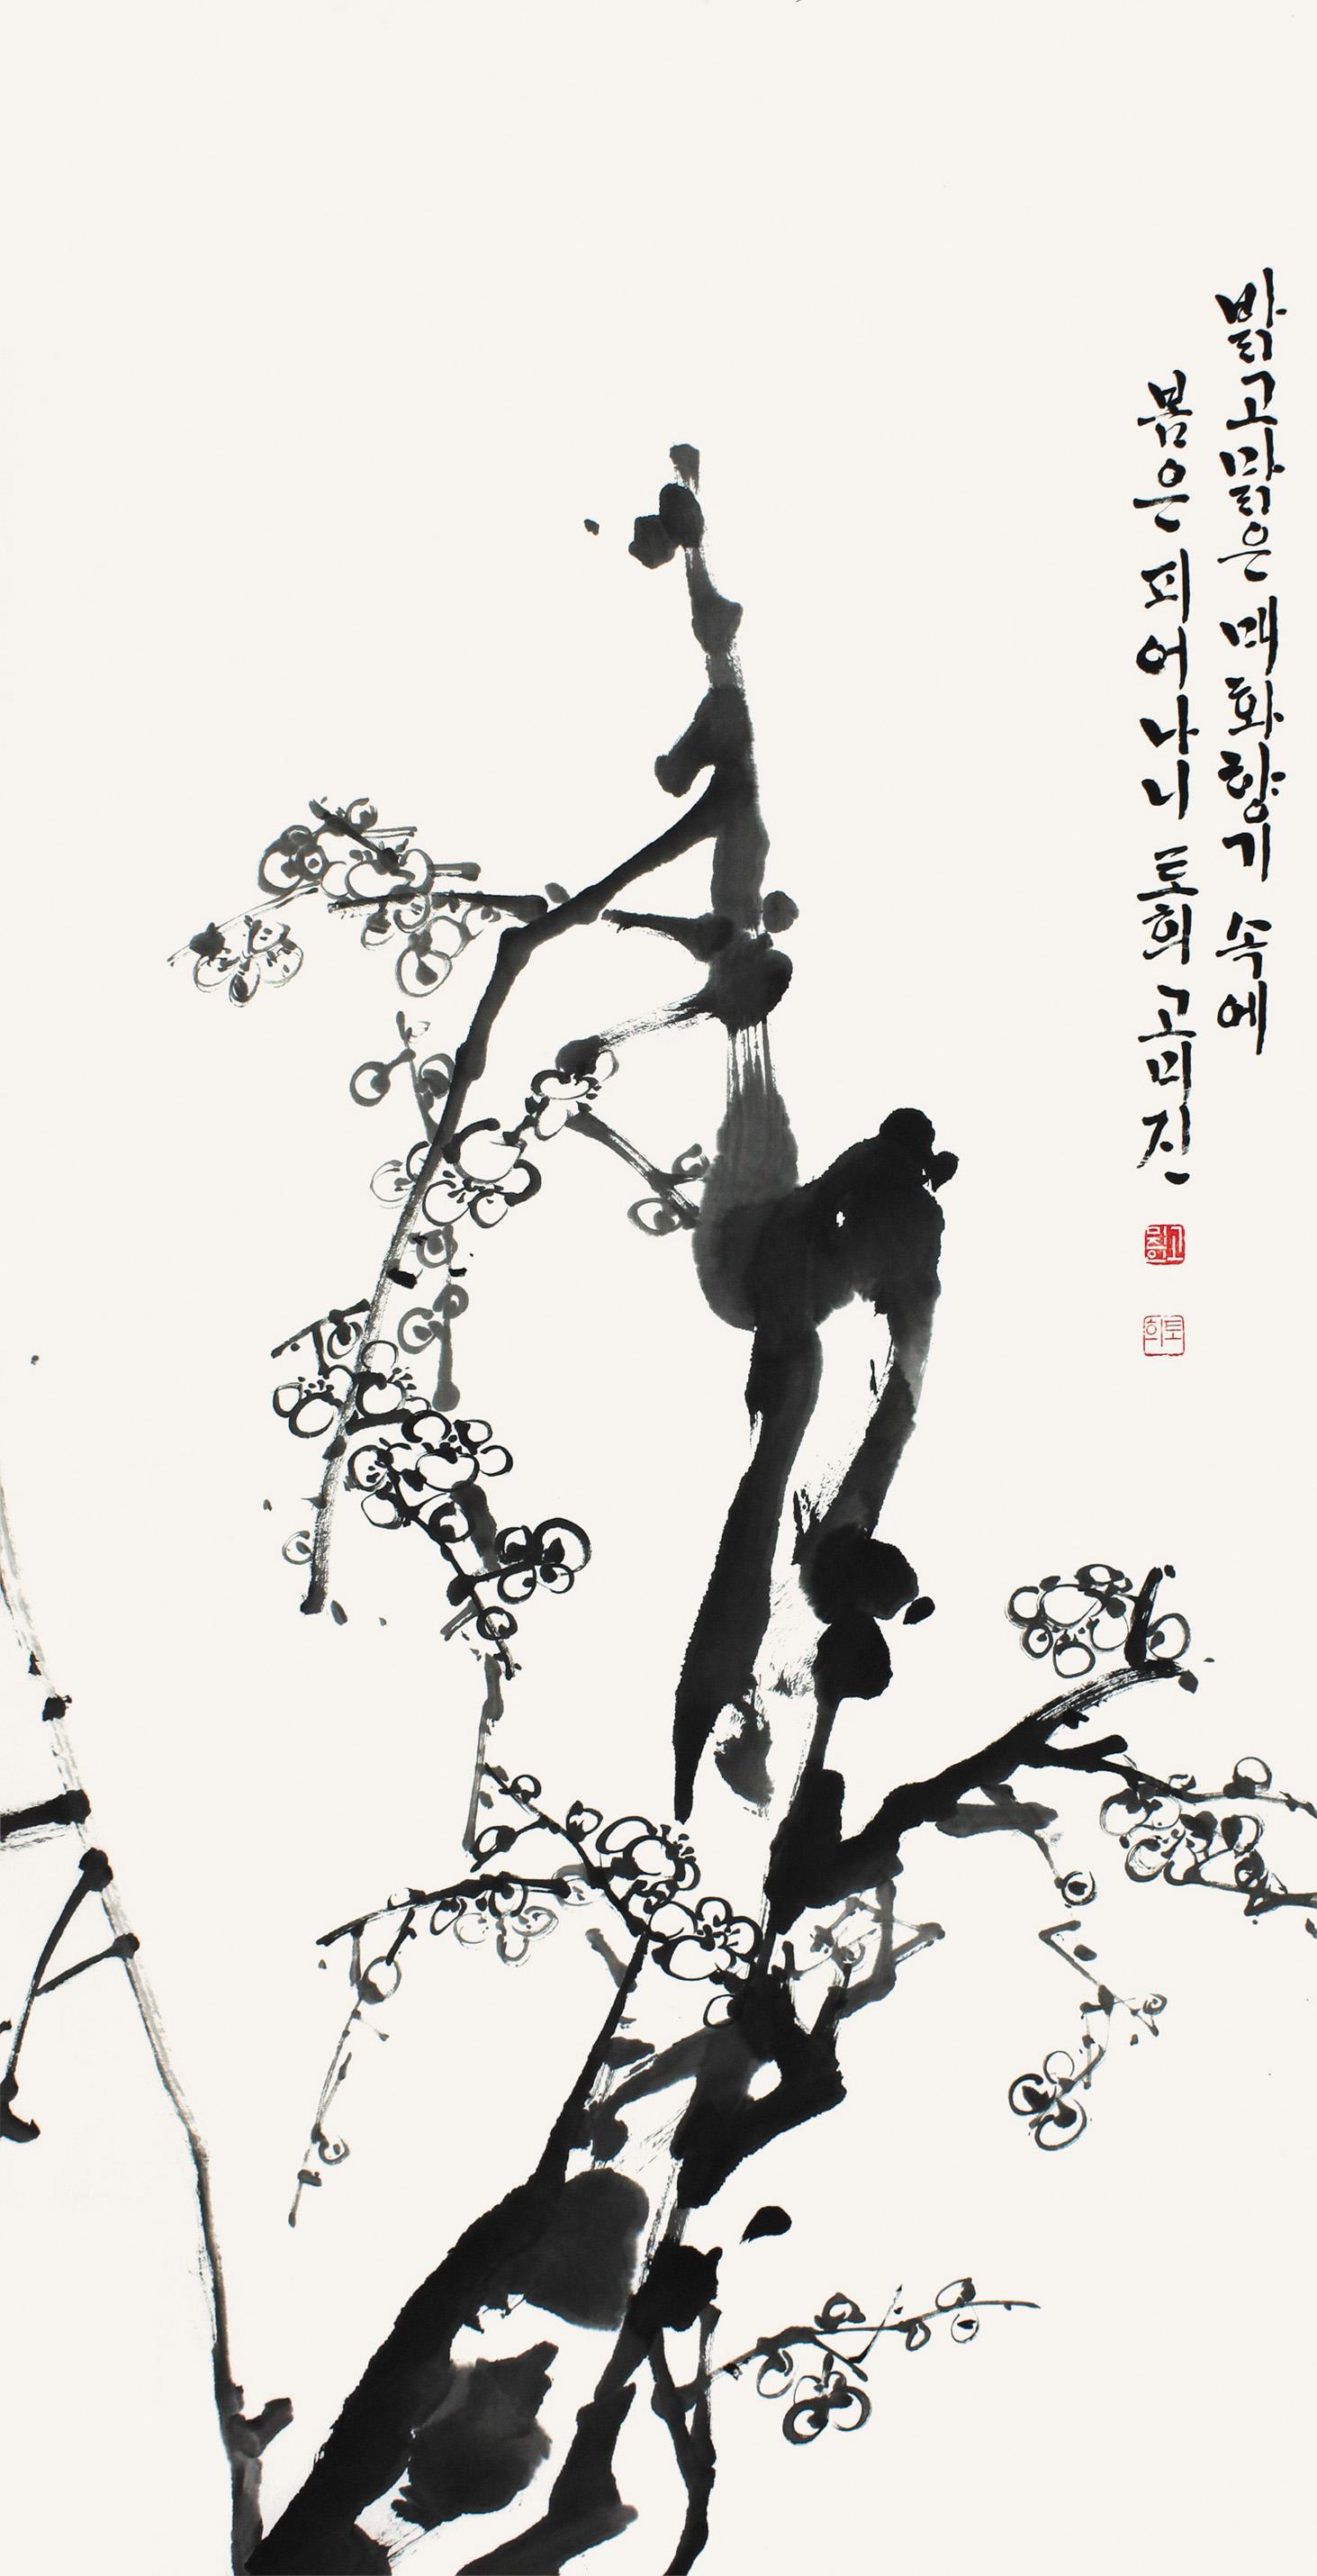 밝고 맑은 매화향기 속에
봄은 피어나니 토희 고미진
고미진
토희